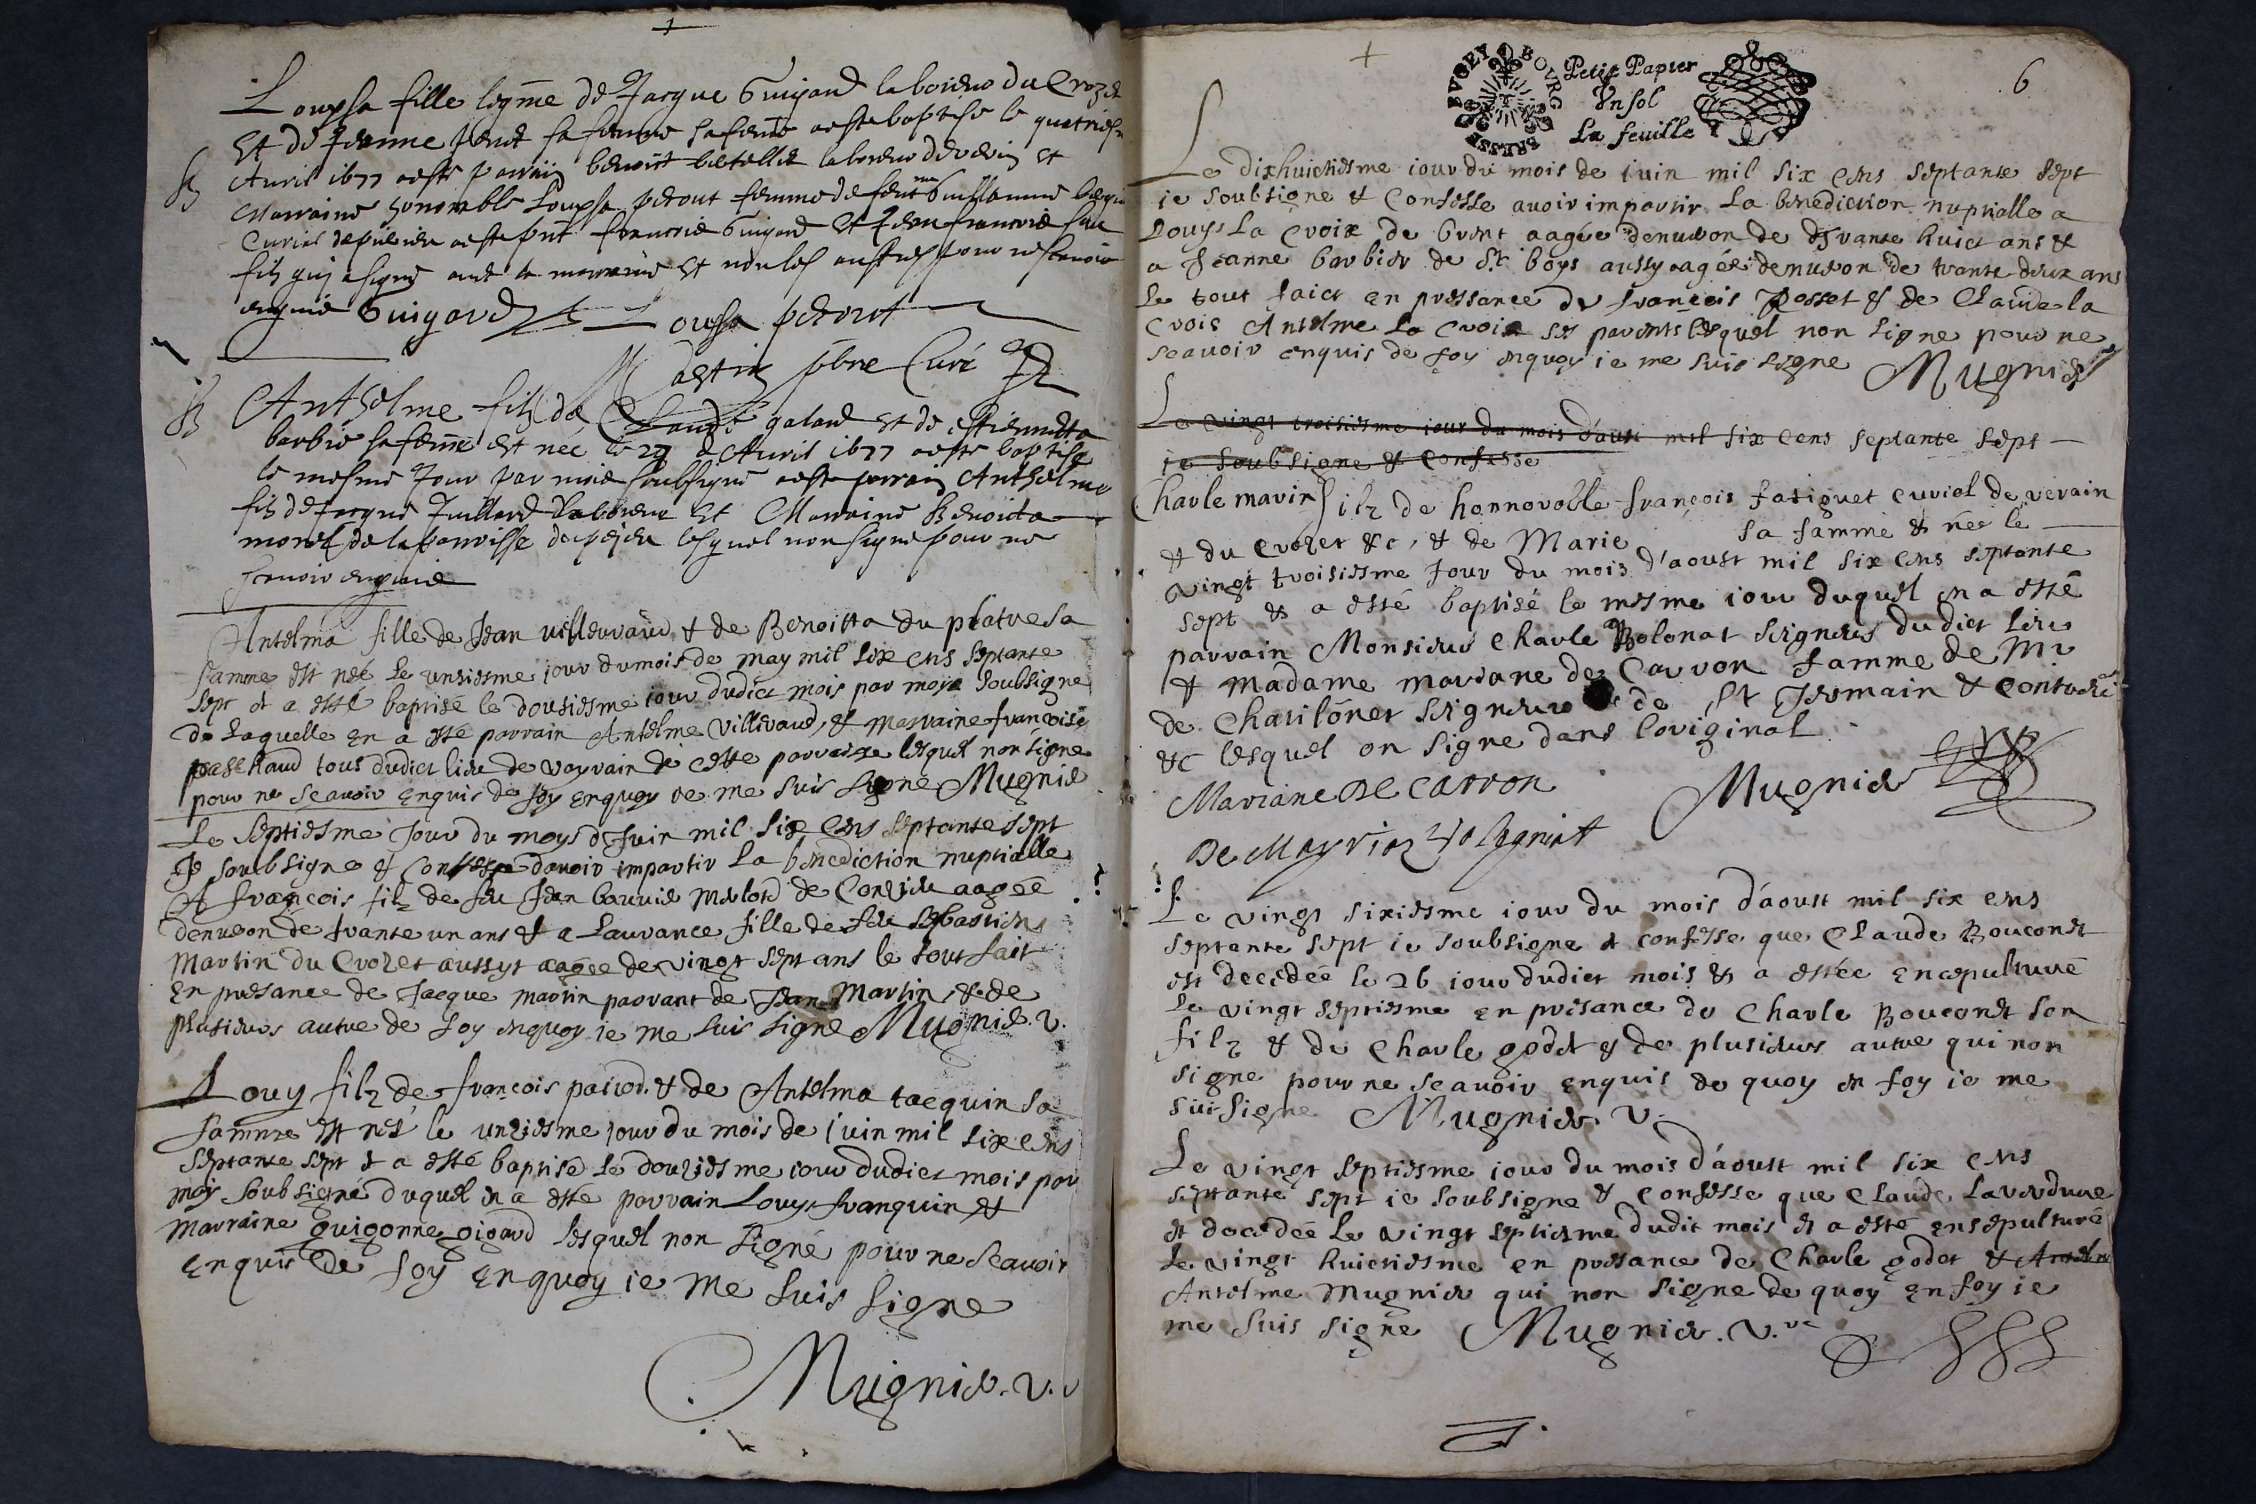 Louysa fille legme de Jacque Guigard laboreur du Crozet
Et de Jeanne sa femme a este baptise le quatriesme
Avril 1677 a este parrain benoict laboreur de verin Et
Marraine honorable Louysa perout femme de feu me Guillaume
Curial a este pnt francois Guigard Et Jean francois son
filz qui a signé avec la marraine Et non les austres pour ne scavoir
enquis Guigard Louysa perout
Martin pbre Curé
B
Anthelme filz de Claude galand Et de Estiennetta
barbie sa feme Est née le 29 Avril 1677 a este baptise
le mesme Jour par moie soubsigné a este parrain Anthelme
filz de Jacque Juillard laboreur Et Marraine Benoita
morel de la parroisse de lesquel non signe pour ne
scavoir enquis
Antelma fille de Jean villeuvaud & de Benoitta du platre sa
famme est née le unziesme jour du mois de may mil six cens septante
sept et a esté baptisé le dousiesme jour dudict mois par moy soubsigne
de laquelle en a esté parrain Antelme villevaud, et marraine françoise
paschaud tous dudict lieu de vayrain de ceste parroisse lesquel non signe
pour ne scavoir enquis de foy enquoy ie me suis signé Mugnier
Le septiesme Jour du moys de Juin mil six cens septante sept
Je soubsigne & Confesse davoir impartir la benediction nuptialle
A françois filz de feu Jean de Conzieu aagée
denvron de trante un ans & a Laurance fille de feu sebastiens
Martin du Crozet aussyt aagée de vingt sept ans le tout fait
En presance de Jacque martin parrant de Jean Martin, & de
plusieurs autre de foy enquoy ie me suis signe Mugnier. v.
Louy filz de françois & de Antelma Jacquin sa
famme est nes le unziesme jour du mois de juin mil six cens
septante sept & a esté baptisé le douziesme iour dudict mois par
moy soubsigné duquel en a esté parrain Louys franquin &
marraine guigonne gigard lesquel non signé pour ne scavoir
Enquis de foy enquoy ie me suis signe
Mugnier. v. v
6
BUGEY BOURG BRESSE
Petit Papier
Un sol
La feuille
Le dixhuictiesme iour du mois de iuin mil six cens septante sept
ie soubsigne & Confesse avoir impartir la benediction nuptialle a
Louys La Croix de aagée denviron de trante huict ans &
a Jeanne barbier de St boys aussy aagée denviron de trante deux ans
le tout faict en pressance de françois Possot & de Claude la
Crois Antelme la Croix ses parents lesquel non signe pour ne
scavoir enquis de foy enquoy ie me suis signe Mugnier
Le vingt troisiesme iour du mois d'aoust mil six cens septante sept
ie soubsigne & Confesse
Charle marin filz de honnorable françois fatiguet curial de verain
& du Crozet &c, & de Marie sa famme & née le
vingt troisiesme Jour du mois d'aoust mil six cens septante
sept & a esté baptisé le mesme iour duquel en a esté
parrain Monsieur Charle Bolonat seigneur dudict lieu
& Madame mariane de Carron famme de Mr
de Chatilonet seigneur de St Jermain &
&c lesquel on signe dans loriginal
Mariane De Carron Mugnier
De
Le vingt sixiesme iour du mois d'aoust mil six cens
septante sept ie soubsigne & confesse que Claude Bouconet
est decedée le 26 iour dudict mois & a estée ensepulturé
le vingt septiesme en presance de Charle Bouconet son
filz & de Charle godet & de plusieurs autre qui non
signe pour ne scavoir enquis de quoy en foy ie me
suis signe Mugnier. v.
Le vingt septiesme iour du mois d'aoust mil six cens
septante sept ie soubsigne & confesse que Claude Laverdure
et decedée le vingt septiesme dudit mois & a esté ensepulturé
le vingt huictiesme en presance de Charle godet & Antelm
Antelme Mugnier qui non signe de quoy en foy ie
me suis signe Mugnier. v.re